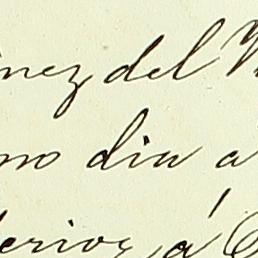 nez del
mo dia a
erior, á